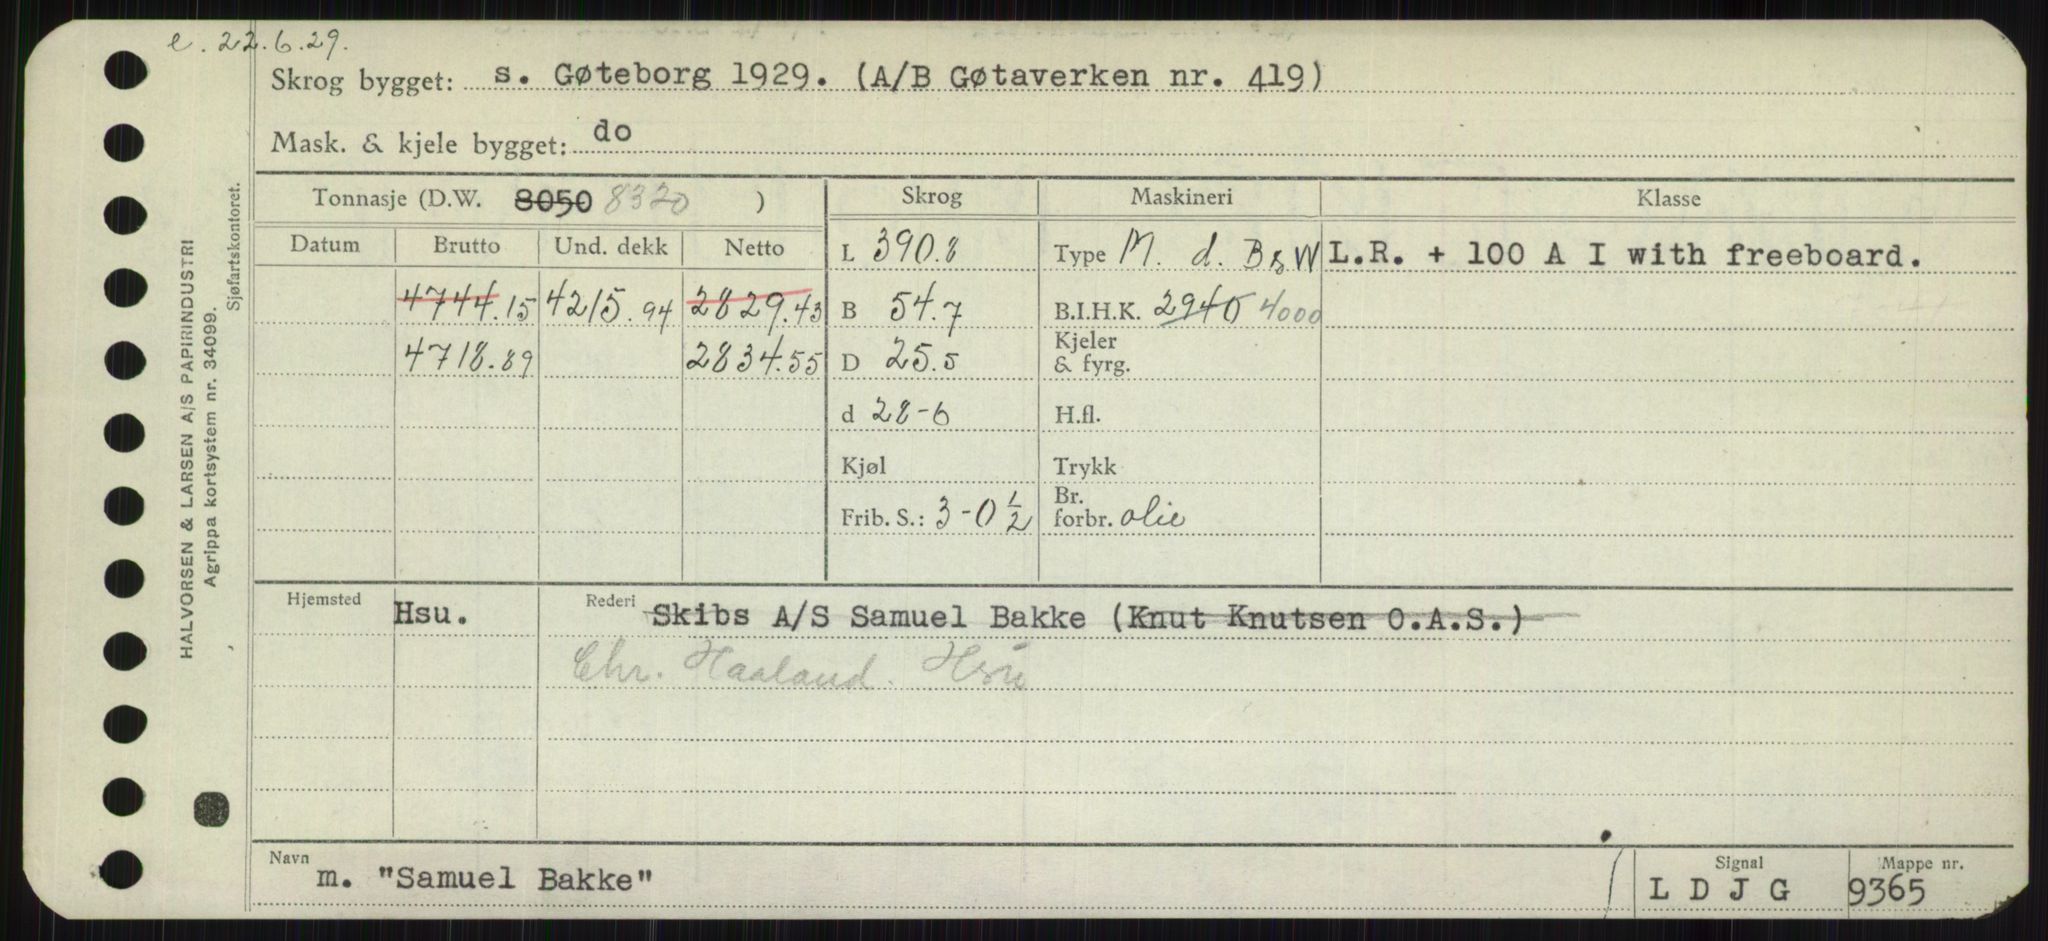 e. 22.6.29.
Skrog bygget: s. Gøteborg 1929. (A/B Gøtaverken nr. 419)
Mask. & kjele bygget: do
Tonnasje (D.W. 8050 8320 ) Skrog Maskineri Klasse
Datum Brutto Und. dekk Netto L 390.8 Type M. d. B & W L.R. + 100 A I with freeboard.
4744.15 4215.94 2829.43 B 54.7 B.I.H.K. 2940 4000
4718.89 2834.55 D 25.5 Kjeler & fyrg.
d 28-6 H.fl.
Kjøl Trykk
Frib. S.: 3-0 1/2 Br. forbr. olie
Hjemsted Hsu. Rederi Skibs A/S Samuel Bakke (Knut Knutsen O.A.S.)
Chr. Haaland. Hsu
Navn m. "Samuel Bakke" Signal L D J G Mappe nr. 9365
HALVORSEN & LARSEN A/S PAPIRINDUSTRI
Agrippa kortsystem nr. 34099.
Sjøfartskontoret.